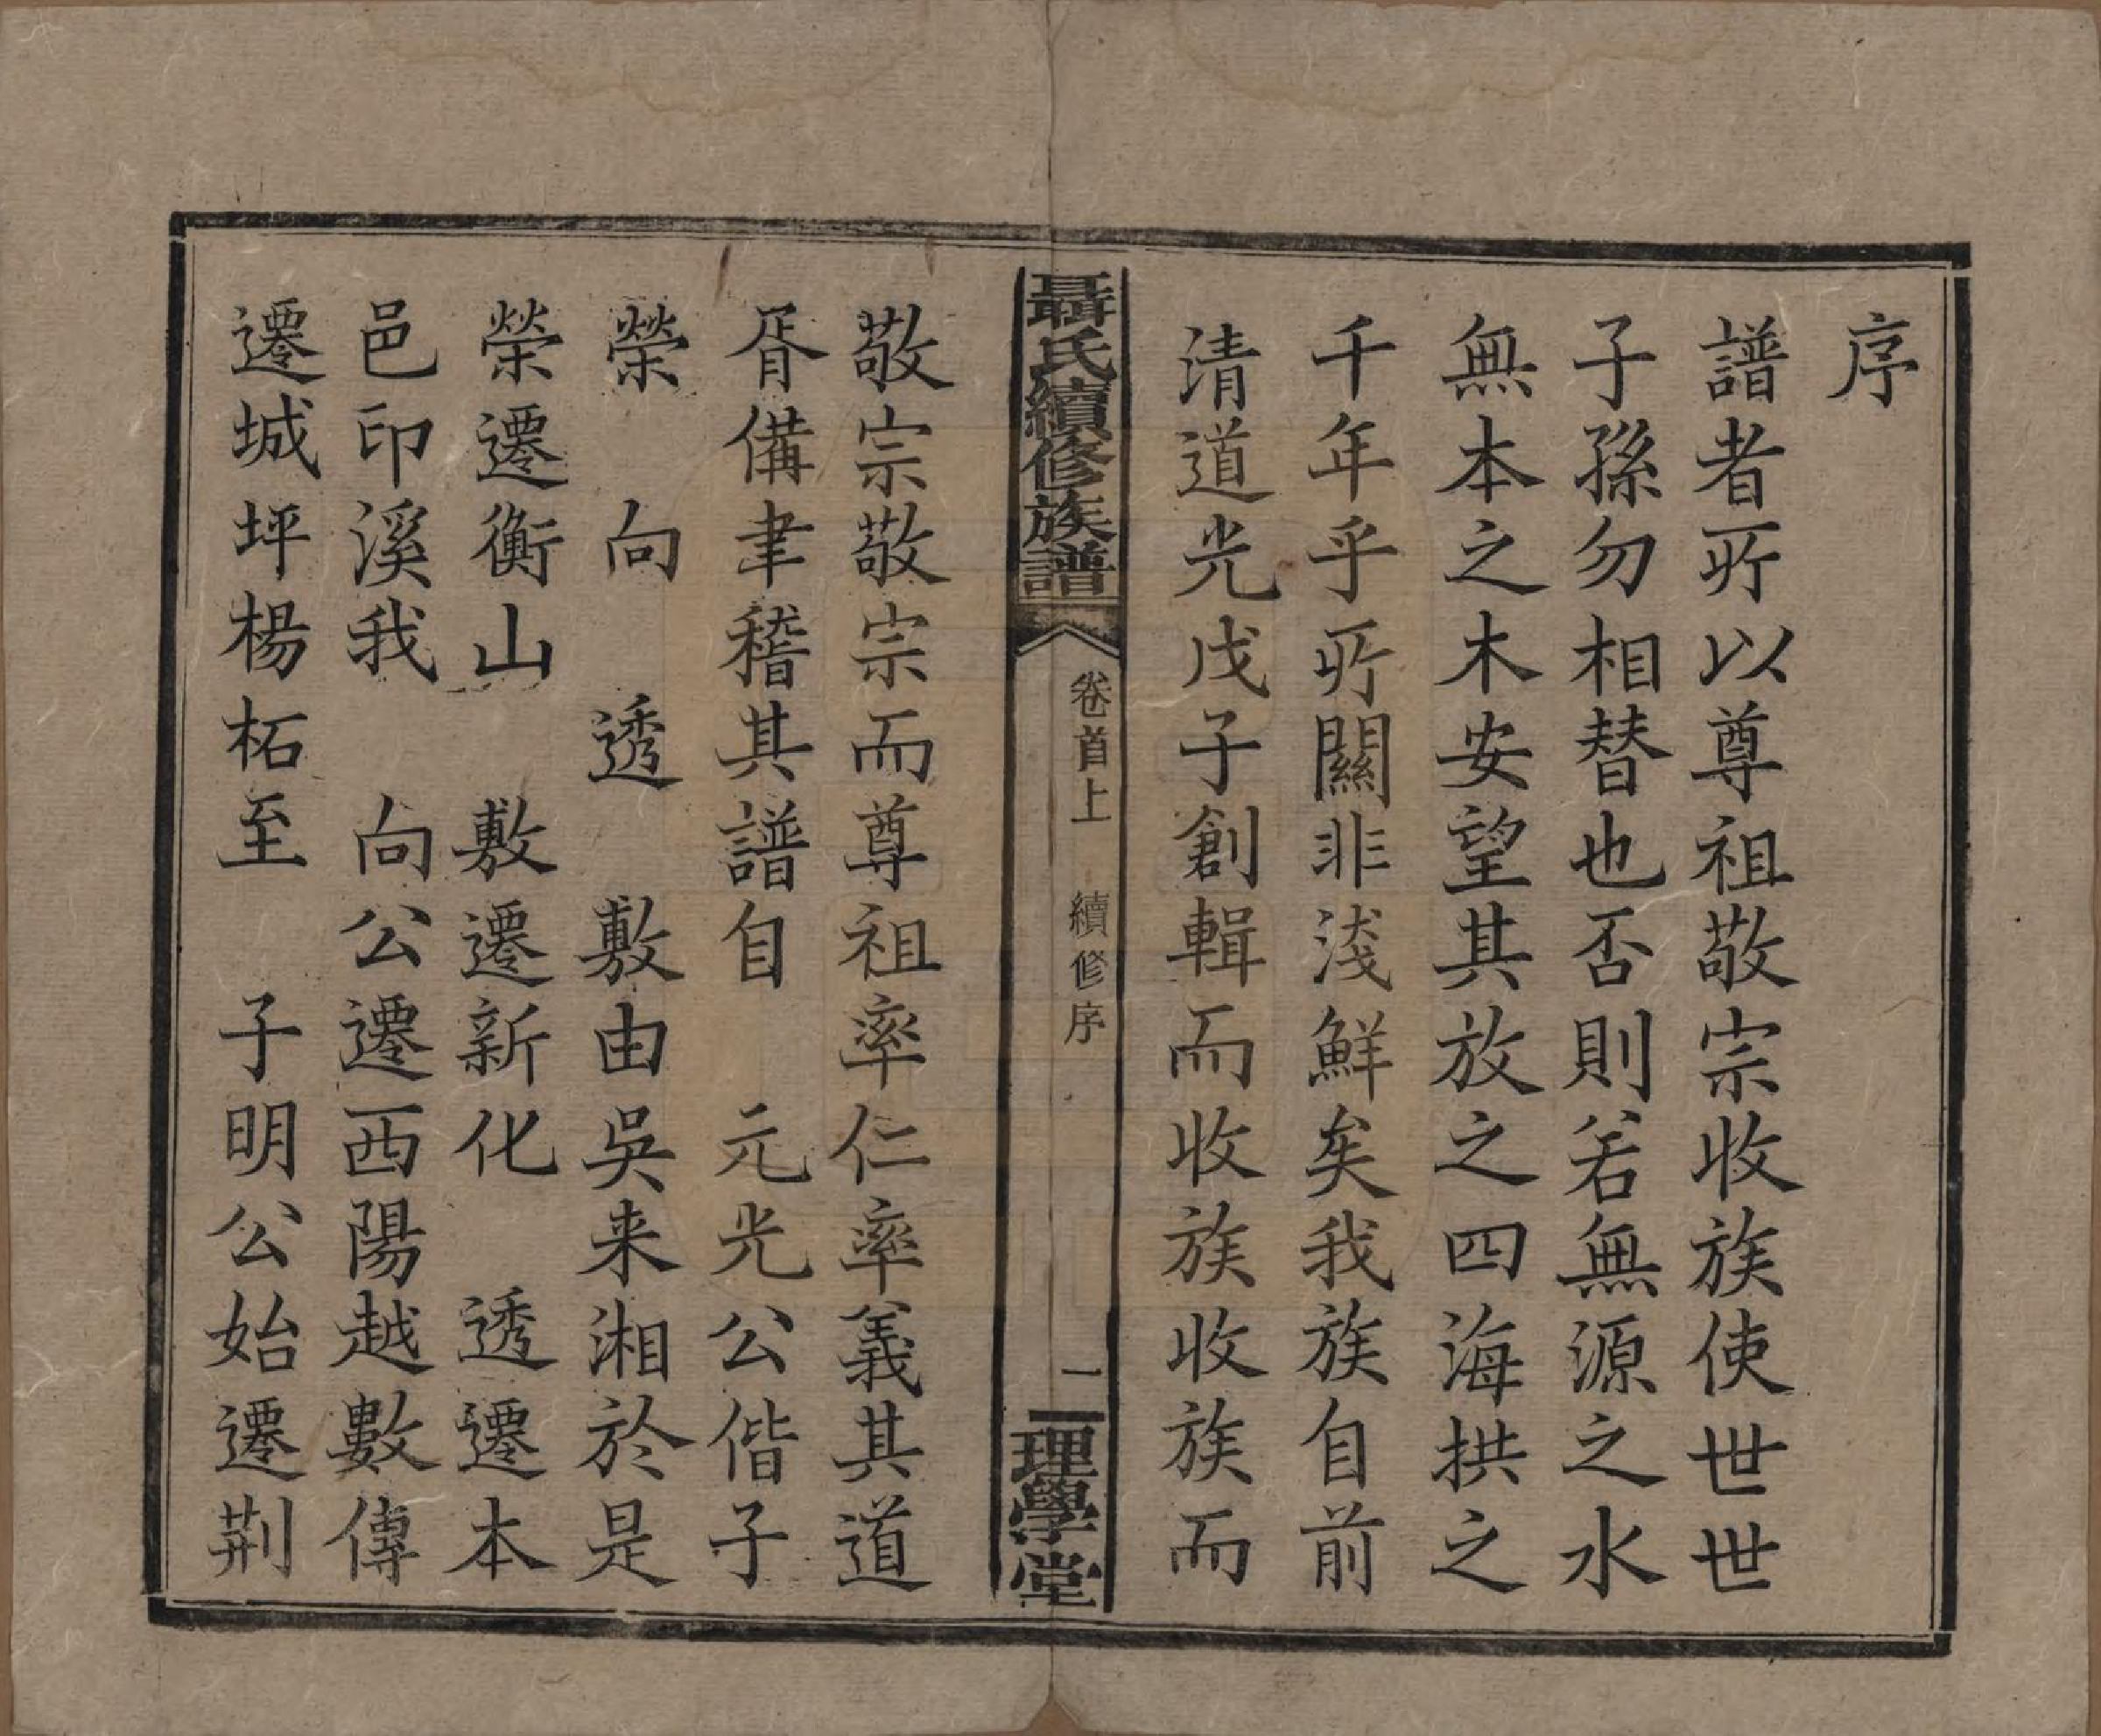 序
譜者所以尊祖敬宗收族使世世
子孫勿相替也否則若無源之水
無本之木安望其放之四海拱之
千年乎所關非淺鮮矣我族自前
清道光戊子創輯而收族收族而
聶氏續修族譜
卷首上 續修序
一
理學堂
敬宗敬宗而尊祖率仁率義其道
胥備聿稽其譜自 元光公偕子
榮 向 透 敷由吳来湘於是
榮遷衡山 敷遷新化 透遷本
邑印溪我 向公遷西陽越數傳
遷城坪楊柘至 子明公始遷荆